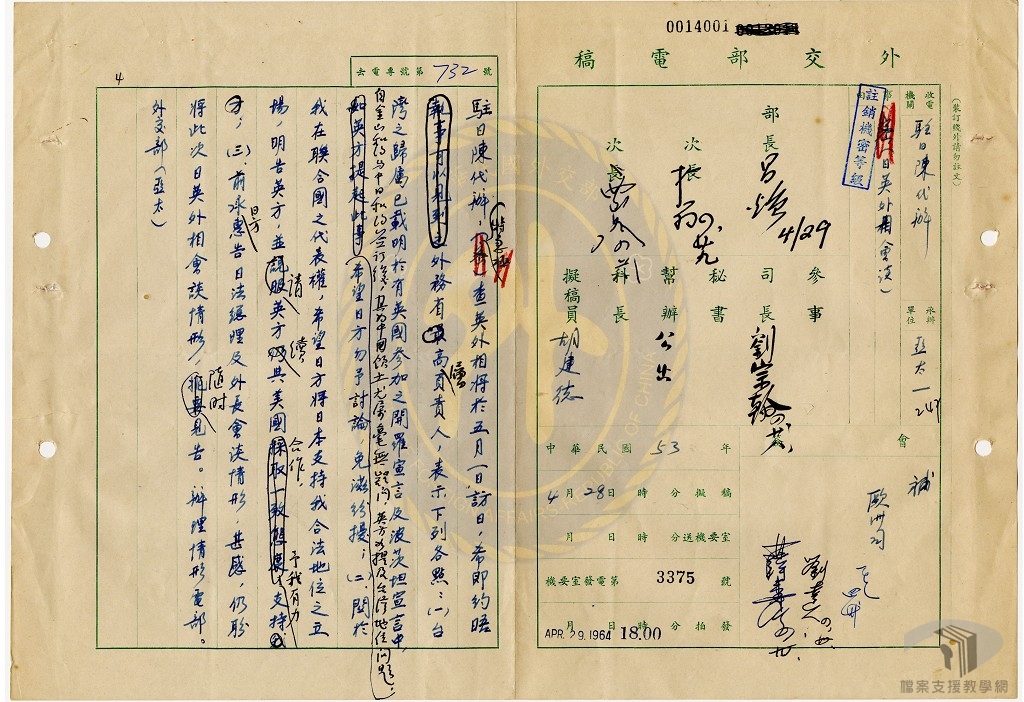 0014001
外交部電稿
(裝訂線外請勿註文)
收電機關
駐日陳代辦
事由
日英外相會談
註銷機密等級
承辦單位
亞太一
部長
4/29
次長
次長
參事
司長
劉宗翰
秘書
幫辦
公出
科長
擬稿員
胡建德
會
歐洲司
中華民國53年
4月28日 時 分擬稿
月 日 時 分送機要室
機要室發電第3375號
月 日 時 分拍發
APR. 29. 1964 18.00
去電專號第732號
4
駐日陳代辦(特急極密)一查英外相將於五月一日訪日,希即約晤
執事可以見到之外務省最高負責人,表示下列各點:(一)台
灣之歸屬已載明於有英國參加之開羅宣言及波茨坦宣言中,
自金山和約與中日和約簽訂後,其為中國領土尤屬毫無疑問,英方如提及台灣地位問題,
如英方提起此事,希望日方勿予討論,免滋紛擾;(二)關於
我在聯合國之代表權,希望日方將日本支持我合法地位之立
場,明告英方,並請說服英方續與美國合作,採取一致態度予我有力支持。
(三)前承日方惠告日法總理及外長會談情形,甚感,仍盼
將此次日英外相會談情形,隨時見告。辦理情形電部。
外交部(亞太)
檔案支援教學網